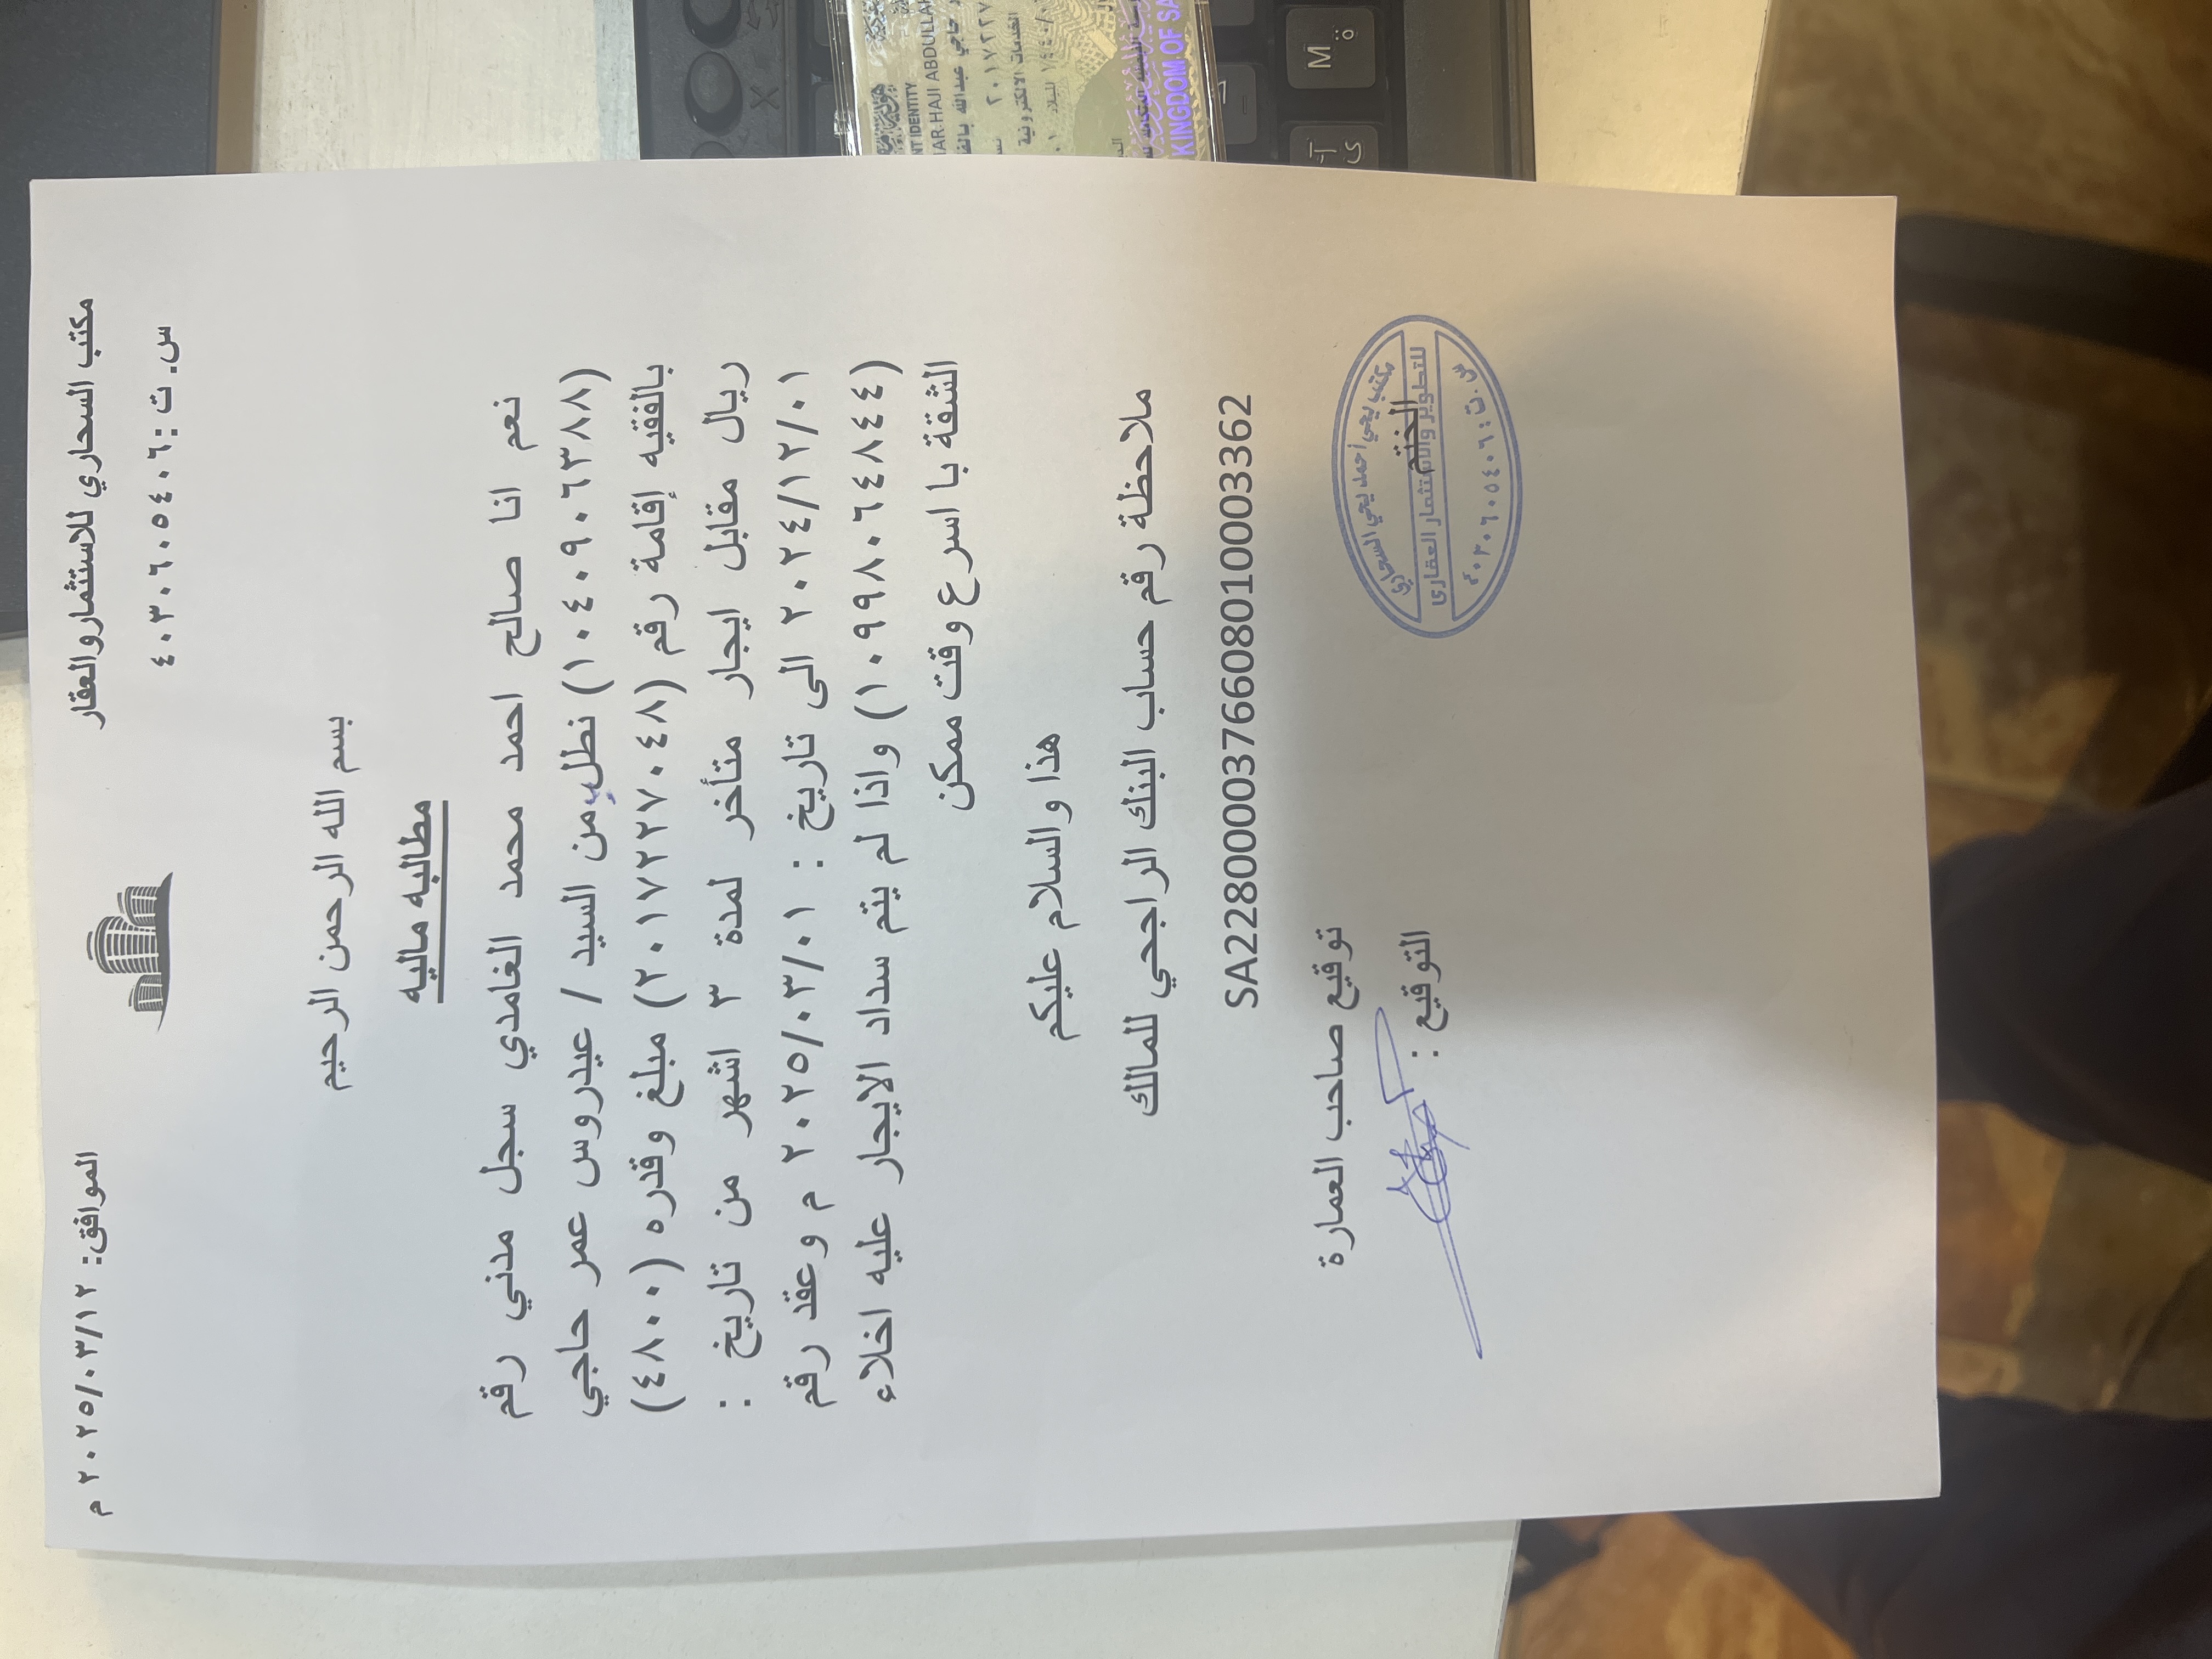 مكتب السحاري للاستثمار والعقار
س. ت :٤٠٣٠٦٠٥٤٠٦
الموافق: ٢٠٢٥/٠٣/١٢ م
بسم الله الرحمن الرحيم
مطالبه ماليه
نعم انا صالح احمد محمد الغامدي سجل مدني رقم
(١٠٤٠٩٠٦٣٨٨) نطلب من السيد / عيدروس عمر حاجي
بالفقيه إقامة رقم (٢٠١٧٢٢٧٠٤٨) مبلغ وقدره (٤٨٠٠)
ريال مقابل ايجار متأخر لمدة ٣ اشهر من تاريخ :
٢٠٢٤/١٢/٠١ الى تاريخ : ٢٠٢٥/٠٣/٠١ م وعقد رقم
(١٠٩٩٨٠٦٤٨٤٤) واذا لم يتم سداد الايجار عليه اخلاء
الشقة با اسرع وقت ممكن
هذا والسلام عليكم
ملاحظة رقم حساب البنك الراجحي للمالك
SA2280000376608010003362
توقيع صاحب العمارة
التوقيع :
الختم
مكتب يحي أحمد يحي السحاري
للتطوير والاستثمار العقاري
س.ت: ٤٠٣٠٦٠٥٤٠٦
IDENTITY
HAJI ABDULLAH
حاجي عبدالله
KINGDOM OF SA
M
ة
ى